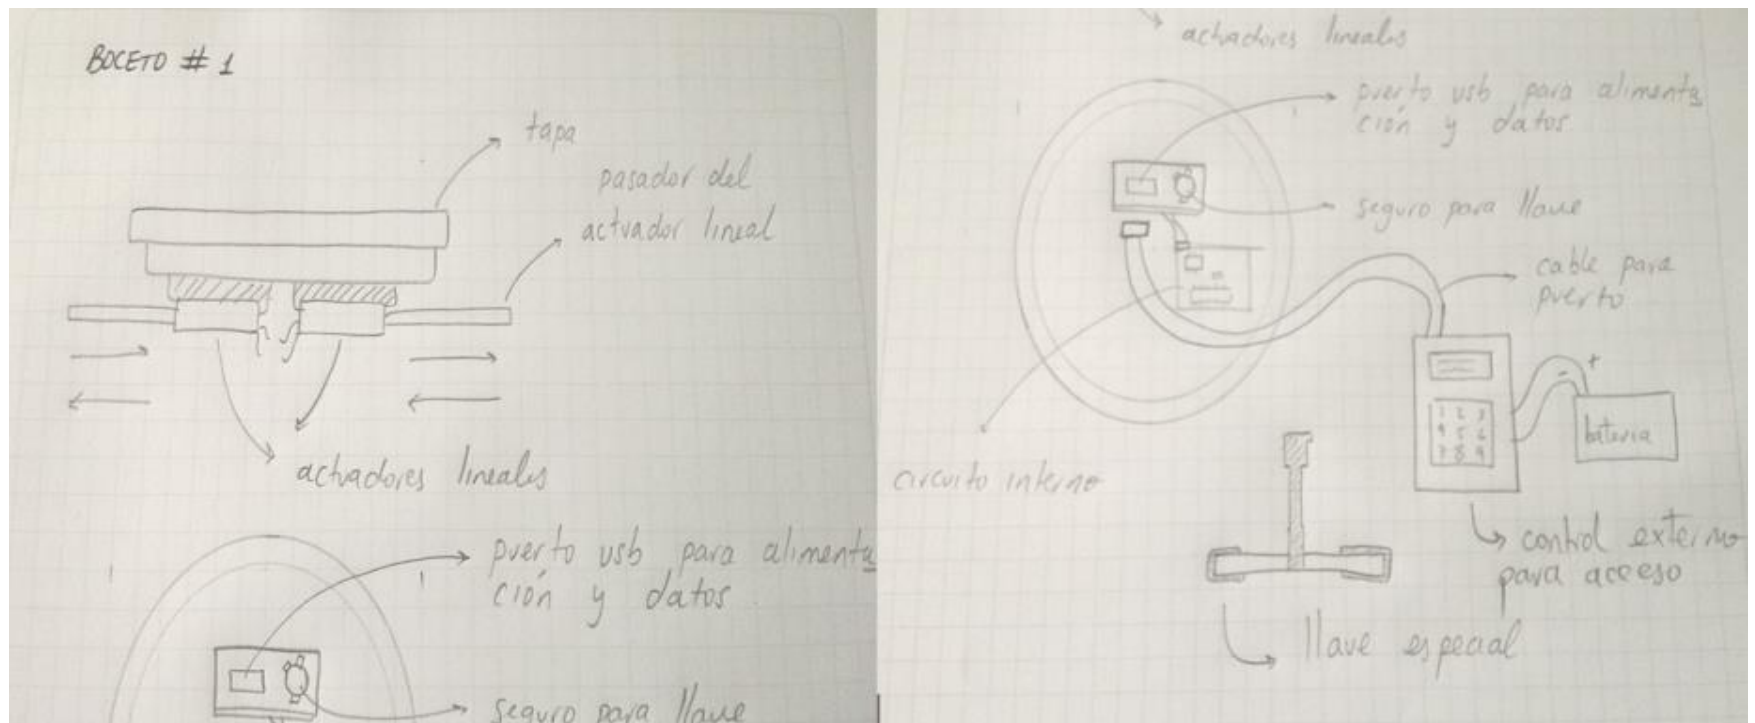 BOCETO # 1
tapa
pasador del
actuador lineal
actuadores lineales
puerto usb para alimenta
ción y datos
seguro para llave
actuadores lineales
puerto usb para alimenta
ción y datos
seguro para llave
cable para
puerto
+
-
1 2 3
4 5 6
7 8 9
bateria
circuito interno
control externo
para acceso
llave especial